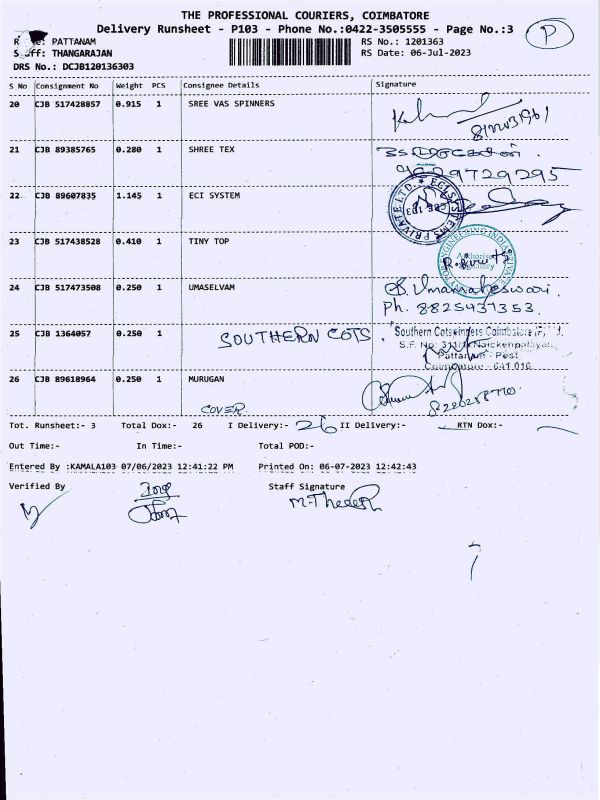 THE PROFESSIONAL COURIERS, COIMBATORE
Delivery Runsheet - P103 - Phone No.:0422-3505555 - Page No.:3
P
PATTANAM
RS No.: 1201363
THANGARAJAN
RS Date: 06-Jul-2023
DRS No.: DCJB120136303
S No Consignment No Weight PCS Consignee Details Signature
20 CJB 517428857 0.915 1 SREE VAS SPINNERS
21 CJB 89385765 0.280 1 SHREE TEX
22 CJB 89607835 1.145 1 ECI SYSTEM
23 CJB 517438528 0.410 1 TINY TOP
24 CJB 517473508 0.250 1 UMASELVAM
S. Umamaheswari.
Ph. 8825437353.
25 CJB 1364057 0.250 1 SOUTHERN COTS.
26 CJB 89618964 0.250 1 MURUGAN
COVER
Tot. Runsheet:- 3 Total Dox:- 26 I Delivery:- 26 II Delivery:- RTN Dox:-
Out Time:- In Time:- Total POD:-
Entered By :KAMALA103 07/06/2023 12:41:22 PM Printed On: 06-07-2023 12:42:43
Verified By Staff Signature